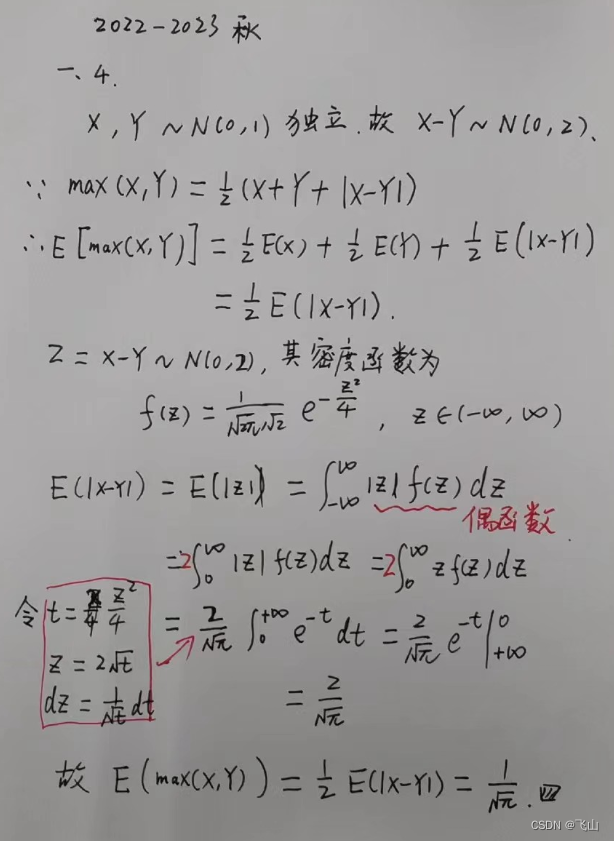 2022-2023 秋
一、4.
X, Y ~ N(0,1) 独立. 故 X-Y ~ N(0,2).
∵ max(X,Y) = 1/2 (X+Y+|X-Y|)
∴ E[max(X,Y)] = 1/2 E(X) + 1/2 E(Y) + 1/2 E(|X-Y|)
= 1/2 E(|X-Y|).
Z = X-Y ~ N(0,2), 其密度函数为
f(z) = 1/(√2π √2) e^(-z²/4), z∈(-∞, ∞)
E(|X-Y|) = E(|Z|) = ∫_{-∞}^{∞} |z| f(z) dz
偶函数
= 2∫_0^∞ |z| f(z) dz = 2∫_0^∞ z f(z) dz
令 t = z²/4
z = 2√t
dz = 1/√t dt
= 2/√π ∫_0^{+∞} e^(-t) dt = 2/√π e^(-t) |_{+∞}^0
= 2/√π
故 E(max(X,Y)) = 1/2 E(|X-Y|) = 1/√π.
CSDN @飞山